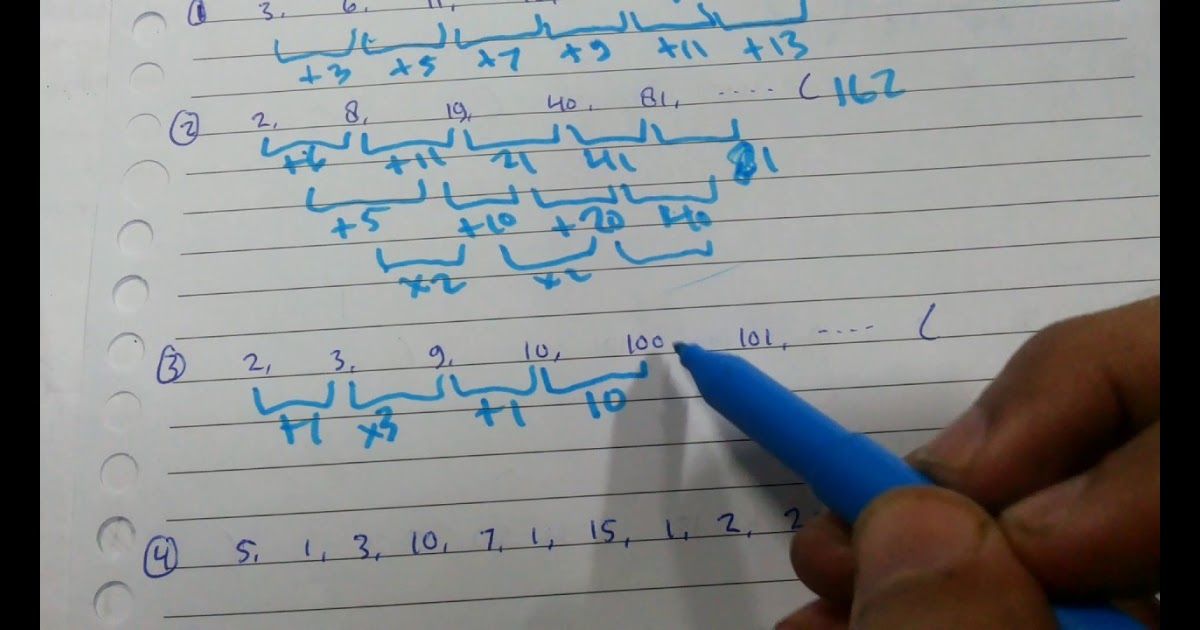 ① 3, 6, 11,
+3 +5 +7 +9 +11 +13
② 2, 8, 19, 40, 81, ..... ( 162
+6 +11 21 41 81
+5 +10 +20 +40
×2 ×2
③ 2, 3, 9, 10, 100 101, .... (
+1 ×3 +1 10
④ 5, 1, 3, 10, 7, 1, 15, 1, 2, 2